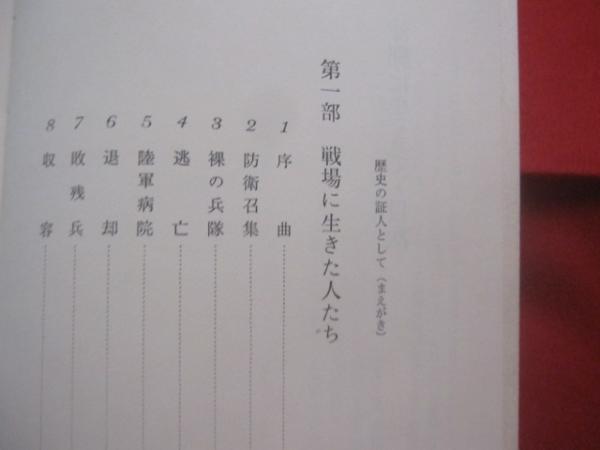 歴史の証人として（まえがき）
第一部　戦場に生きた人たち
1 序曲
2 防衛召集
3 裸の兵隊
4 逃亡
5 陸軍病院
6 退却
7 敗残兵
8 収容